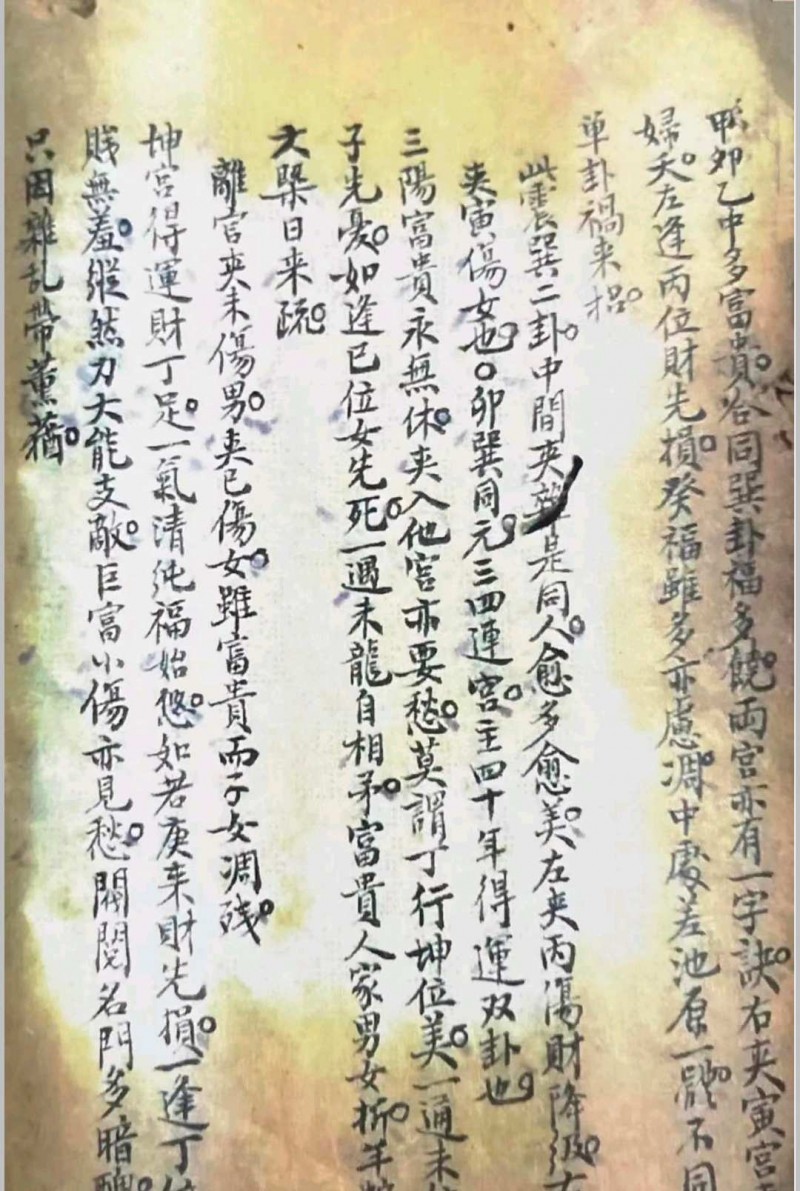 甲卯乙中多富貴。若同巽卦福多饒。兩宮亦有一字訣。右夾寅宮
婦夭。左逢丙位財先損。癸福雖多亦慮凋。中處差池原一體。不同
単卦禍来招。
此震巽二卦。中間夾雜是同人。愈多愈美。左夾丙傷財降级。右
夾寅傷女也。○卯巽同元。三四連宮。主四十年得運双卦也。
三陽富貴永無休。夾入他宮亦要愁。莫謂丁行坤位美。一通未
子先憂。如逢巳位女先死。一遇未龍自相矛。富貴人家男女折。羊
大槩日来疏。
離宮夾未傷男。夾巳傷女。雖富貴而子女凋残。
坤宮得運財丁足。一氣清纯福始悠。如若庚来財先損。一逢丁
賎無羞。縦然力大能支敵。巨富小傷亦見愁。閥閱名門多暗醜。
只因雜乱帶薰蕕。